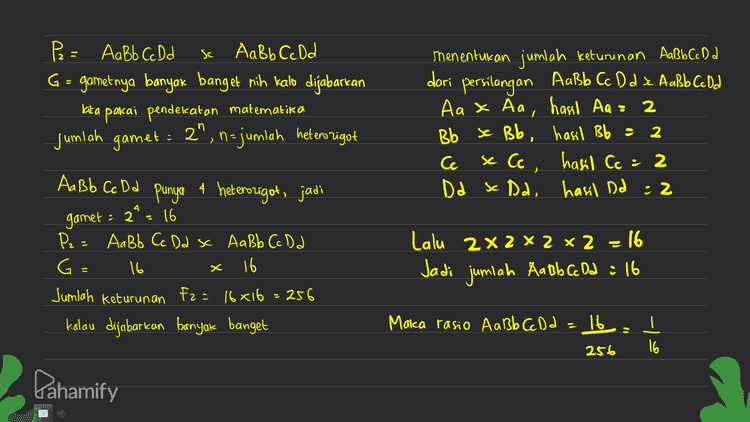 P₂ = AaBb CcDd x AaBb CcDd
G = gametnya banyak banget nih kalo dijabarkan
kita pakai pendekatan matematika
jumlah gamet = 2ⁿ, n = jumlah heterozigot
AaBb CcDd punya 4 heterozigot, jadi
gamet = 2⁴ = 16
P₂ = AaBb CcDd x AaBb CcDd
G = 16 x 16
Jumlah keturunan F₂ = 16 x 16 = 256
kalau dijabarkan banyak banget
menentukan jumlah keturunan AaBbCcDd
dari persilangan AaBb CcDd x AaBb CcDd
Aa x Aa, hasil Aa = 2
Bb x Bb, hasil Bb = 2
Cc x Cc, hasil Cc = 2
Dd x Dd, hasil Dd = 2
Lalu 2 x 2 x 2 x 2 = 16
Jadi jumlah AaBbCcDd = 16
Maka rasio AaBbCcDd = 16/256 = 1/16
Pahamify